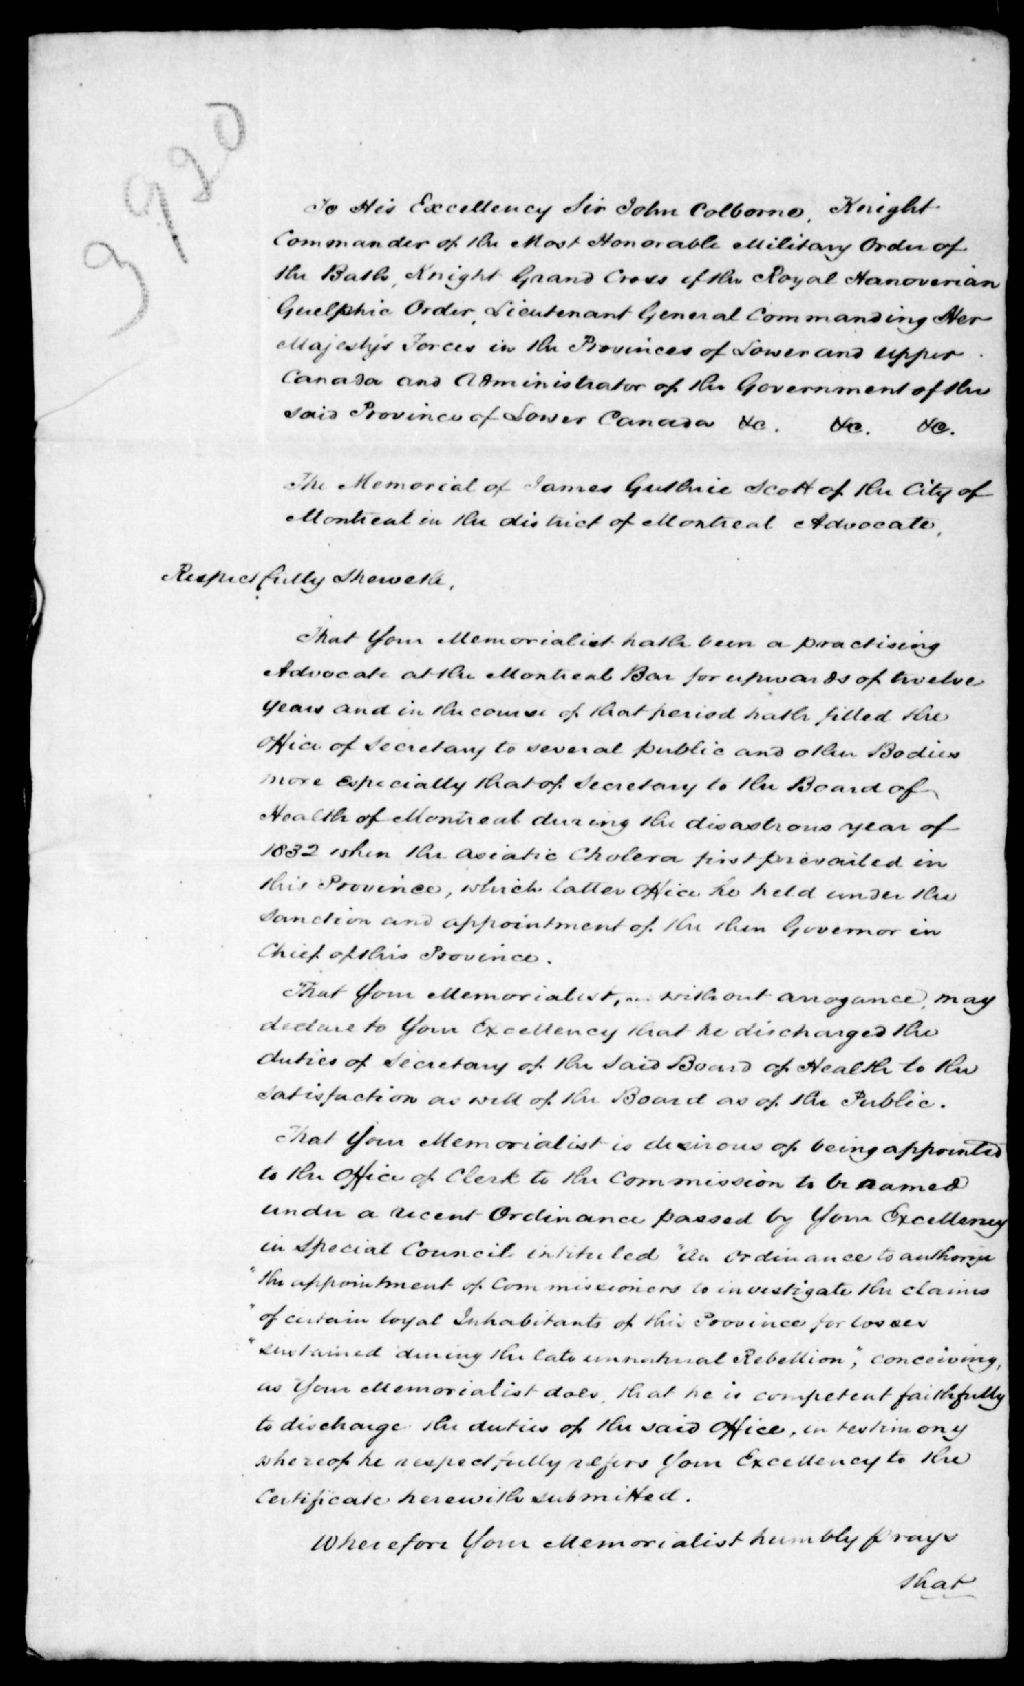 3920
To His Excellency Sir John Colborne, Knight
Commander of the Most Honorable Military Order of
the Bath, Knight Grand Cross of the Royal Hanoverian
Guelphic Order, Lieutenant General Commanding Her
Majesty's Forces in the Provinces of Lower and Upper
Canada and Administrator of the Government of the
said Province of Lower Canada &c. &c. &c.
The Memorial of James Guthrie Scott of the City of
Montreal in the district of Montreal Advocate,
Respectfully Sheweth,
That Your Memorialist hath been a practising
Advocate at the Montreal Bar for upwards of twelve
years and in the course of that period hath filled the
Office of Secretary to several public and other Bodies
more especially that of Secretary to the Board of
Health of Montreal during the disastrous year of
1832 when the Asiatic Cholera first prevailed in
this Province, which latter Office he held under the
sanction and appointment of the then Governor in
Chief of this Province.
That Your Memorialist, without arrogance, may
declare to Your Excellency that he discharged the
duties of Secretary of the said Board of Health to the
satisfaction as well of the Board as of the Public.
That Your Memorialist is desirous of being appointed
to the Office of Clerk to the Commission to be named
under a recent Ordinance passed by Your Excellency
in Special Council intituled "An Ordinance to authorize
"the appointment of Commissioners to investigate the claims
"of certain loyal Inhabitants of this Province for losses
"sustained during the late unnatural Rebellion", conceiving,
as Your Memorialist does, that he is competent faithfully
to discharge the duties of the said Office, in testimony
whereof he respectfully refers Your Excellency to the
Certificate herewith submitted.
Wherefore Your Memorialist humbly prays
that